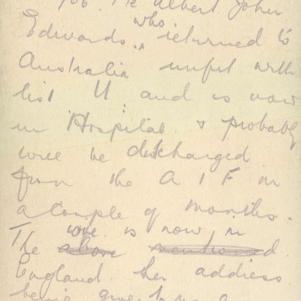 Albert John
Edwards. who returned to
Australia unfit with
list II and is now
in Hospital & probably
will be discharged
from the A I F in
a couple of months.
The wife is now in
The above mentioned
England her address
being